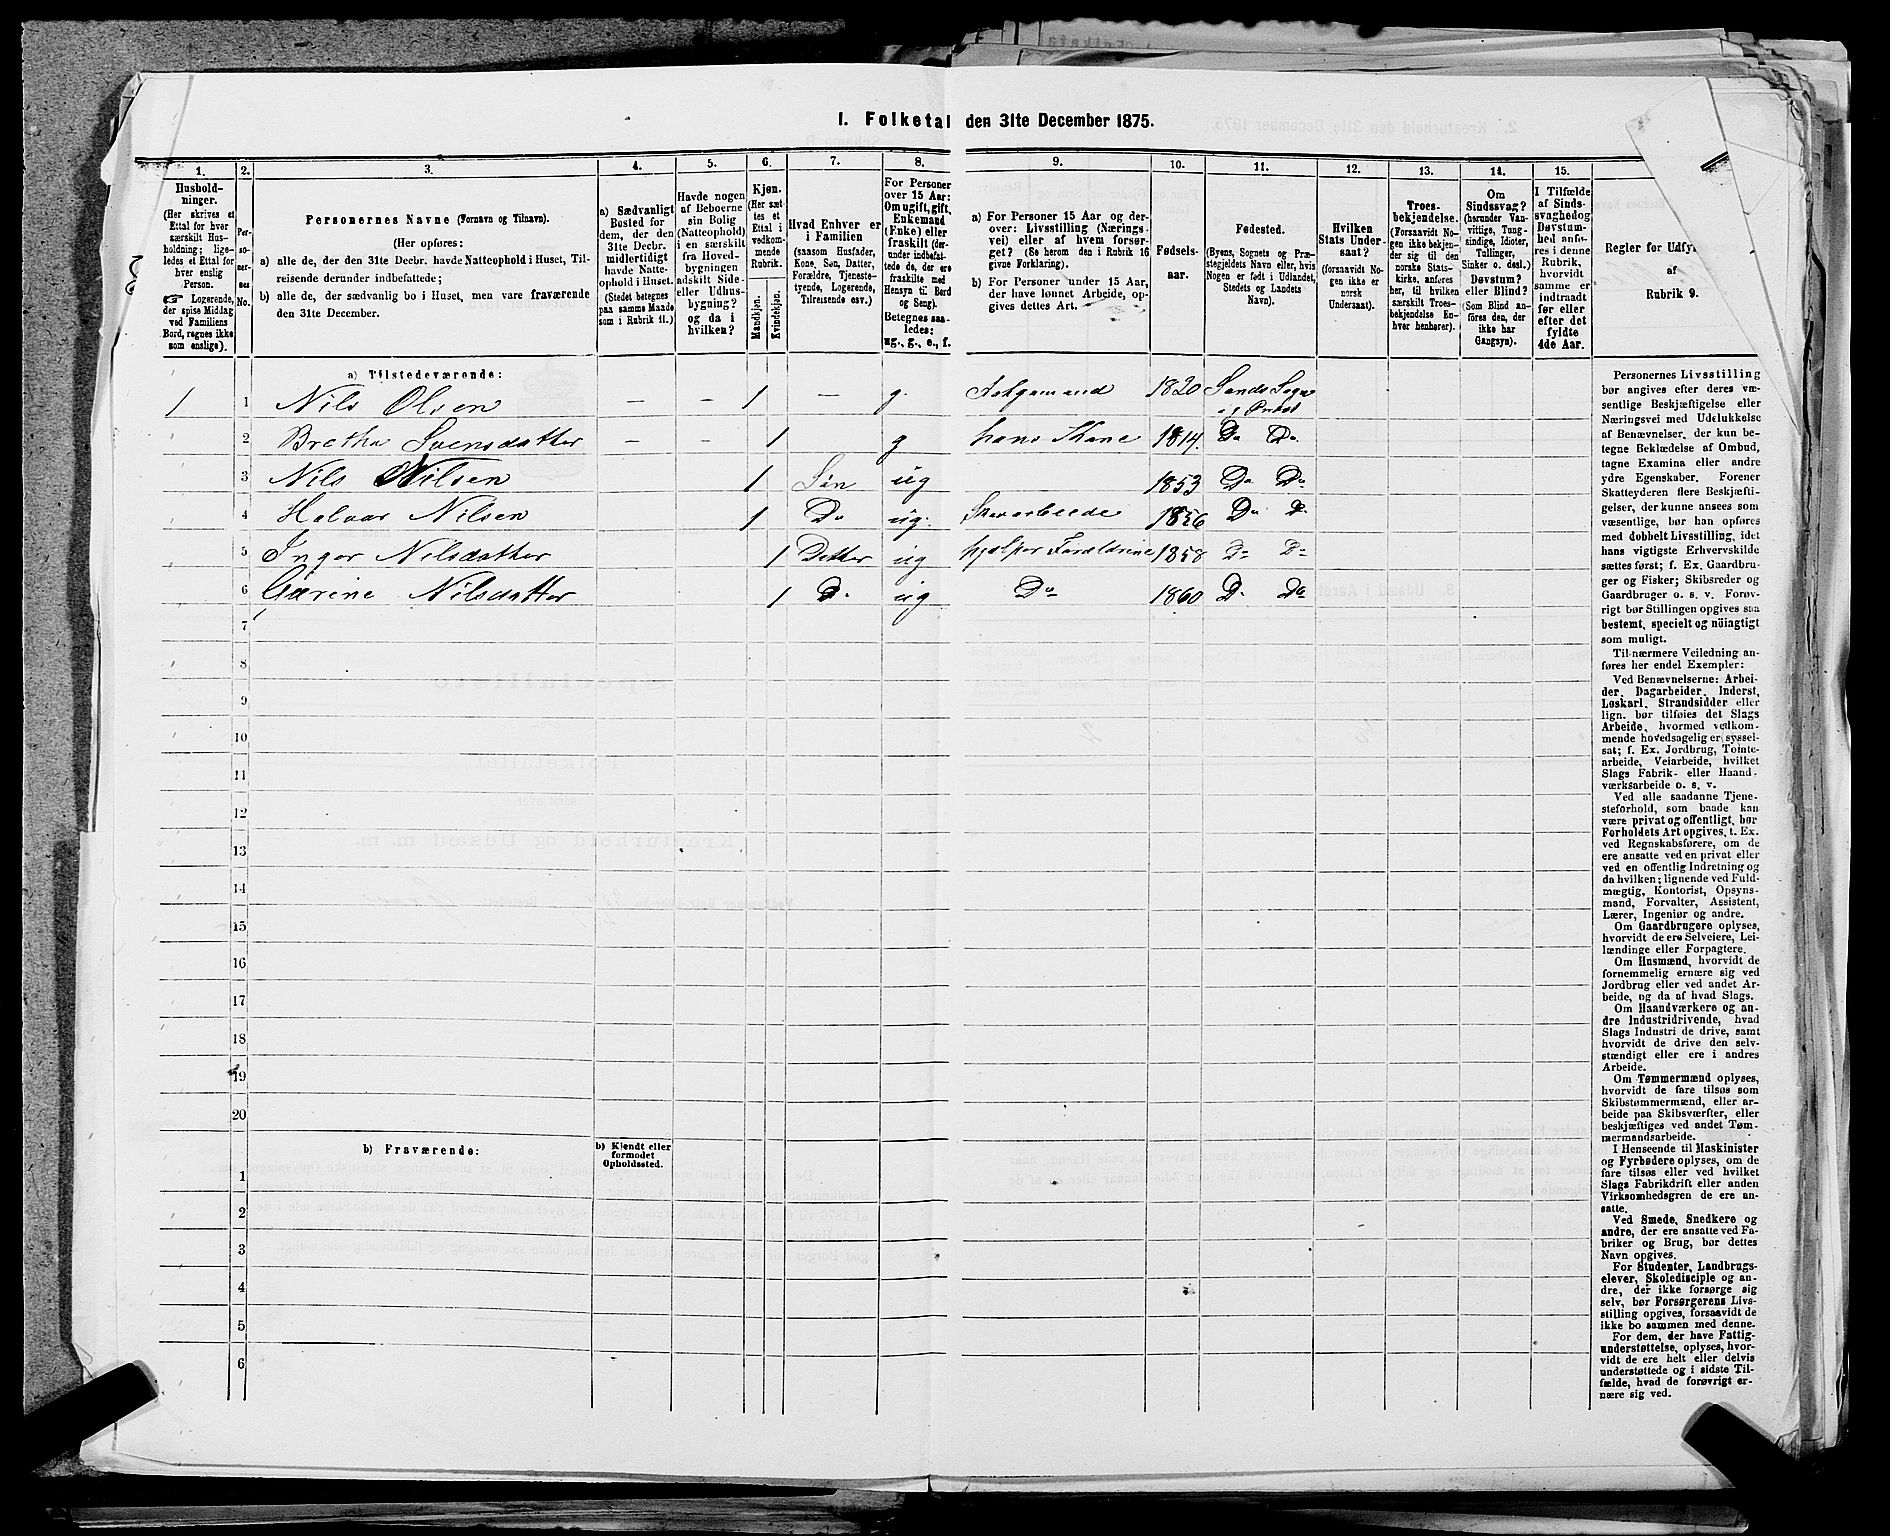 1. Folketal den 31te December 1875.
1.
Husholdninger.
(Her skrives et
Ettal for hver
særskilt Husholdning;
ligeledes et Ettal for
hver enslig
Person.
Logerende,
der spise Middag
ved Familiens
Bord, regnes ikke
som enslige).
2.
Personernes
No.
3.
Personernes Navne (Fornavn og Tilnavn).
(Her opføres:
a) alle de, der den 31te Decbr. havde Natteophold i Huset, Tilreisende derunder indbefattede;
b) alle de, der sædvanlig bo i Huset, men vare fraværende
den 31te December.
4.
a) Sædvanligt
Bosted for
dem, der den
31te Decbr.
midlertidigt
havde Natteophold i Huset.
(Stedet betegnes
paa samme Maade
som i Rubrik 11.)
5.
Havde nogen
af Beboerne
sin Bolig
(Natteophold)
i en særskilt
fra Hovedbygningen
adskilt Side- eller Udhusbygning?
og da i
hvilken?
6.
Kjøn.
(Her sættes et
Ettal i
vedkommende
Rubrik.
Mandkjøn.
Kvindekjøn.
7.
Hvad Enhver er
i Familien
(saasom Husfader,
Kone, Søn, Datter,
Forældre, Tjenestetyende, Logerende,
Tilreisende osv.)
8.
For Personer
over 15 Aar:
Om ugift, gift,
Enkemand
(Enke) eller
fraskilt (derunder indbefattede de, der ere
fraskilte med
Hensyn til Bord
og Seng).
Betegnes saaledes:
ug., g., e., f.
9.
a) For Personer 15 Aar og derover: Livsstilling (Næringsvei) eller af hvem forsørget? (Se herom den i Rubrik 16
givne Forklaring).
b) For Personer under 15 Aar,
der have lønnet Arbeide, opgives dettes Art.
10.
Fødselsaar.
11.
Fødested.
(Byens, Sognets og Præstegjeldets Navn eller, hvis
Nogen er født i Udlandet,
Stedets og Landets
Navn).
12.
Hvilken
Stats Undersaat?
(forsaavidt Nogen ikke er
norsk
Undersaat).
13.
Troesbekjendelse.
(Forsaavidt Nogen ikke bekjender sig til den
norske Statskirke, anføres
her, til hvilken
særskilt Troesbekjendelse Enhver henhører).
14.
Om
Sindssvag?
(herunder Vanvittige, Tungsindige, Idioter,
Tullinger,
Sinker o. desl.)
Døvstum?
eller Blind?
(Som Blind anføres den, der
ikke har
Gangsyn).
15.
I Tilfælde
af Sindssvaghed og
Døvstumhed anføres i denne
Rubrik,
hvorvidt
samme er
indtraadt
før eller
efter det
fyldte
4de Aar.
Regler for Udfy
af
Rubrik 9.
a) Tilstedeværende:
1 1 Nils Olsen — — 1 — g. 1820 Sands Sogn
2 Bretha Svensdatter — — 1 g hans Kone 1814 Do Do
3 Nils Nilsen 1 Søn ug 1853 Do Do
4 Halvor Nilsen 1 Do ug. Skovarbeide 1856 Do Do
5 Inger Nilsdatter 1 Datter ug hjælper Forældrene 1858 Do Do
6 Gurine Nilsdatter 1 Do ug Do 1860 Do Do
7
8
9
10
11
12
13
14
15
16
17
18
19
20
b) Fraværende:
b) Kjendt eller
formodet
Opholdssted.
1
2
3
4
5
6
Personernes Livsstilling
bør angives efter deres væsentlige Beskjæftigelse eller
Næringsvei med Udelukkelse
af Benævnelser, der kun betegne Beklædelse af Ombud,
tagne Examina eller andre
ydre Egenskaber. Forener
Skatteyderen flere Beskjæftigelser, der kunne ansees som
væsentlige, bør han opføres
med dobbelt Livsstilling, idet
hans vigtigste Erhvervskilde
sættes først; f. Ex. Gaardbruger og Fisker; Skibsreder og
Gaardbruger o. s. v. Forøvrigt bør Stillingen opgives saa
bestemt, specielt og nöiagtigt
som muligt.
Til nærmere Veiledning anføres her endel Exempler:
Ved Benævnelserne: Arbeider, Dagarbeider, Inderst,
Løskarl, Strandsidder eller
lign. bør tilføies det Slags
Arbeide, hvormed vedkommende hovedsagelig er sysselsat; f. Ex. Jordbrug, Tomtearbeide, Veiarbeide, hvilket
Slags Fabrik- eller Haandværksarbeide o. s. v.
Ved alle saadanne Tjenesteforhold, som baade kan
være privat og offentligt, bør
Forholdets Art opgives, t. Ex.
ved Regnskabsførere, om de
ere ansatte ved en privat eller
ved en offentlig Indretning og
da hvilken; lignende ved Fuldmægtig, Kontorist, Opsynsmand, Forvalter, Assistent,
Lærer, Ingeniør og andre.
Om Gaardbrugere oplyses,
hvorvidt de ere Selveiere, Leilændinge eller Forpagtere.
Om Husmænd, hvorvidt de
fornemmelig ernære sig ved
Jordbrug eller ved andet Arbeide, og da af hvad Slags.
Om Haandværkere og andre Industridrivende, hvad
Slags Industri de drive, samt
hvorvidt de drive den selvstændigt eller ere i andres
Arbeide.
Om Tømmermænd oplyses,
hvorvidt de fare tilsøs som
Skibstømmermænd, eller arbeide paa Skibsværfter, eller
beskjæftiges ved andet Tømmermandsarbeide.
I Henseende til Maskinister
og Fyrbødere oplyses, om de
fare tilsøs eller ved hvilket
Slags Fabrikdrift eller anden
Virksomhedsgren de ere ansatte.
Ved Smede, Snedkere og
andre, der ere ansatte ved Fabriker og Brug, bør dettes
Navn opgives.
For Studenter, Landbrugselever, Skoledisciple og andre, der ikke forsørge sig
selv, bør Forsørgerens Livsstilling opgives, forsaavidt de
ikke bo sammen med denne.
For dem, der have Fattigunderstøttelse, oplyses, hvorvidt de ere helt eller delvis
understøttede og i sidste Tilfælde, hvad de forøvrigt ernære sig ved.